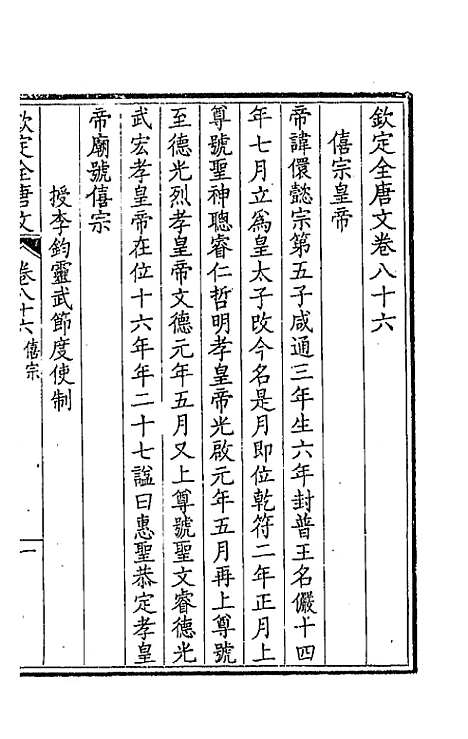 欽定全唐文卷八十六
僖宗皇帝
帝諱儇懿宗第五子咸通三年生六年封普王名儼十四
年七月立爲皇太子改今名是月即位乾符二年正月上
尊號聖神聰睿仁哲明孝皇帝光啟元年五月再上尊號
至德光烈孝皇帝文德元年五月又上尊號聖文睿德光
武宏孝皇帝在位十六年年二十七諡曰惠聖恭定孝皇
帝廟號僖宗
授李鈞靈武節度使制
欽定全唐文 卷八十六 僖宗 一